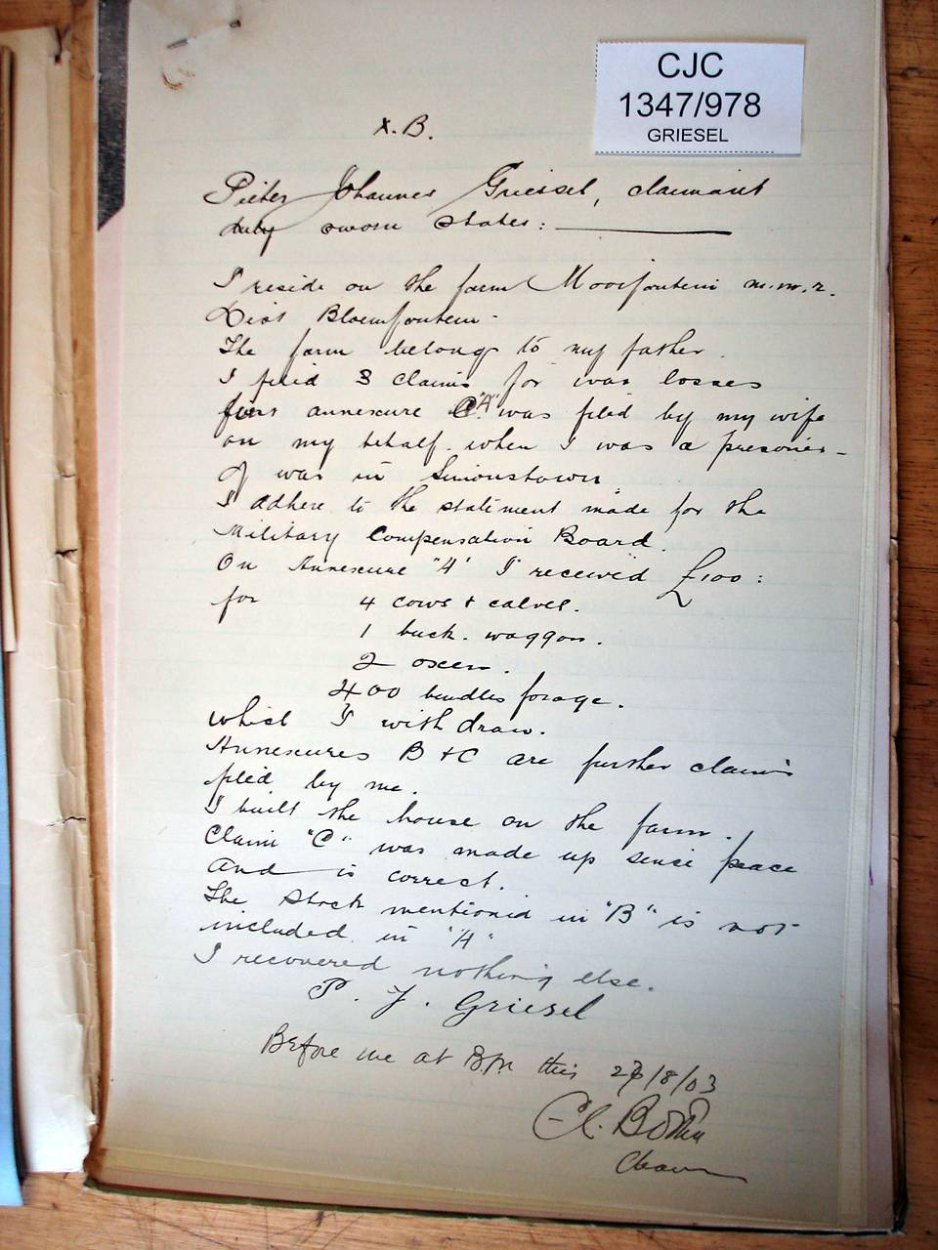 CJC
1347/978
GRIESEL
x. B.
Pieter Johannes Griesel, claimant
duly sworn states:
I reside on the farm Mooifontein m.w.r.
Dist Bloemfontein.
The farm belong to my father.
I filed 3 claims for war losses
first annexure "A" was filed by my wife
on my behalf. when I was a presonier
of war in Simonstown
I adhere to the statement made for the
Military Compensation Board.
On Annexure "A" I received £100:
for 4 cows & calves.
1 buck. waggon.
2 oxen.
400 bundles forage.
which I withdraw.
Annexures B & C are further claims
filed by me.
I built the house on the farm.
Claim "C" was made up sence peace
and is correct.
The stock mentioned in "B" is not
included in "A"
I recovered nothing else.
P. J. Griesel
Before me at Bfn this /8/03